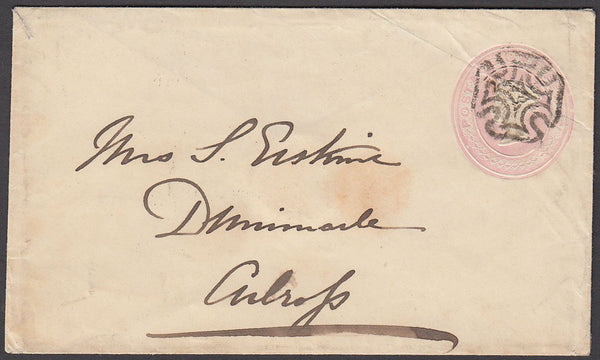 Mrs S. Erskine
Dunimarle
Culross